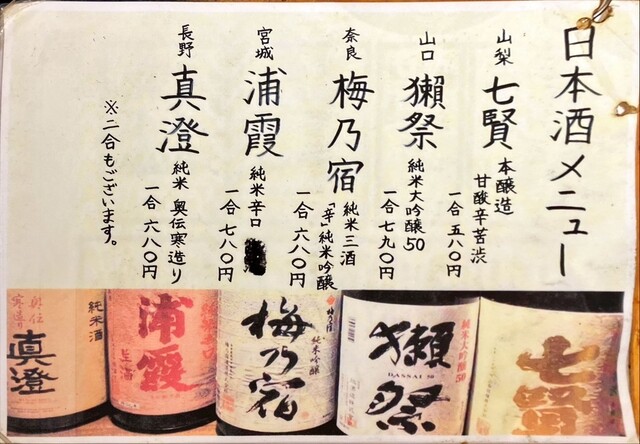 日本酒メニュー
山梨
七賢
本醸造
甘酸辛苦渋
一合 五八〇円
山口
獺祭
純米大吟醸50
一合 七九〇円
奈良
梅乃宿
純米三酒
「辛」純米吟醸
一合 六八〇円
宮城
浦霞
純米辛口
一合 七八〇円
長野
真澄
純米 奥伝寒造り
一合 六八〇円
※二合もございます。
七賢
純米大吟醸50
獺祭
DASSAI 50
梅乃宿
純米吟醸
浦霞
純米酒
奥伝
寒造り
真澄